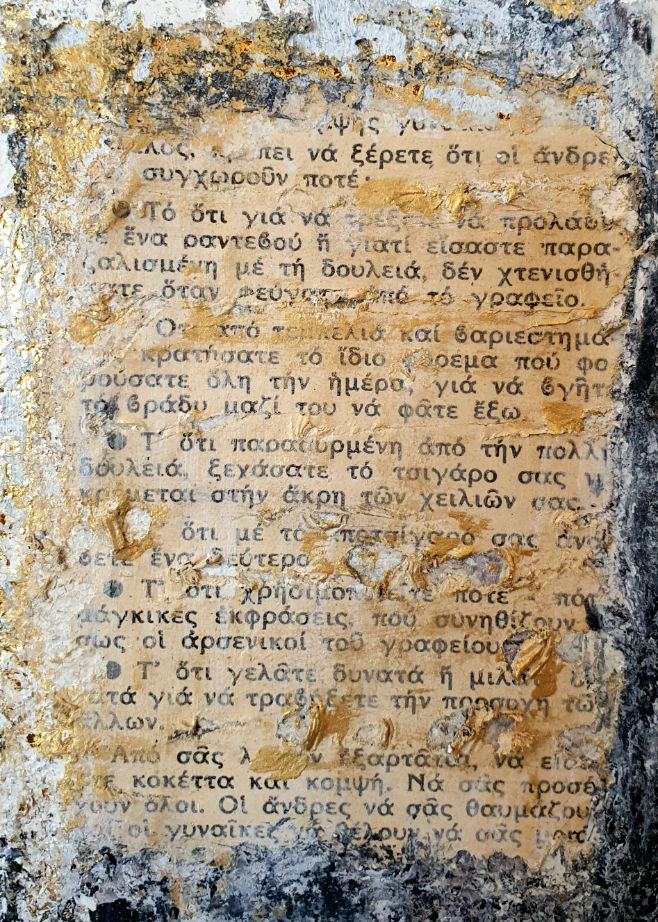 πρέπει νά ξέρετε ὅτι οἱ ἄνδρε
συγχωροῦν ποτέ·
● Τό ὅτι γιά νά τρέξετε νά προλάβη
τε ἕνα ραντεβού ἤ γιατί εἴσαστε παρα-
ζαλισμένη μέ τή δουλειά, δέν χτενισθή-
κατε ὅταν φεύγατε ἀπό τό γραφεῖο.
Ὅτι ἀπό τεμπελιά καί βαριεστημά
κρατήσατε τό ἴδιο φόρεμα πού φο
ρούσατε ὅλη τήν ἡμέρα, γιά νά βγῆτε
τό βράδυ μαζί του νά φᾶτε ἔξω.
● Τ' ὅτι παρασυρμένη ἀπό τήν πολλή
δουλειά, ξεχάσατε τό τσιγάρο σας ν
κρέμεται στήν ἄκρη τῶν χειλιῶν σας.
ὅτι μέ τό ἀποτσίγαρο σας ἀνά
βετε ἕνα δεύτερο
● Τ' ὅτι χρησιμοποιεῖτε ποτέ - πότε
μάγκικες ἐκφράσεις, πού συνηθίζουν
σως οἱ ἀρσενικοί τοῦ γραφείου
● Τ' ὅτι γελᾶτε δυνατά ἤ μιλᾶτε
νατά γιά νά τραβήξετε τήν προσοχή τῶν
ἄλλων.
Ἀπό σᾶς λοιπόν ἐξαρτᾶται, νά εἶσα
στε κοκέττα καί κομψή. Νά σᾶς προσέ
χουν ὅλοι. Οἱ ἄνδρες νά σᾶς θαυμάζουν
καί οἱ γυναῖκες νά θέλουν νά σᾶς